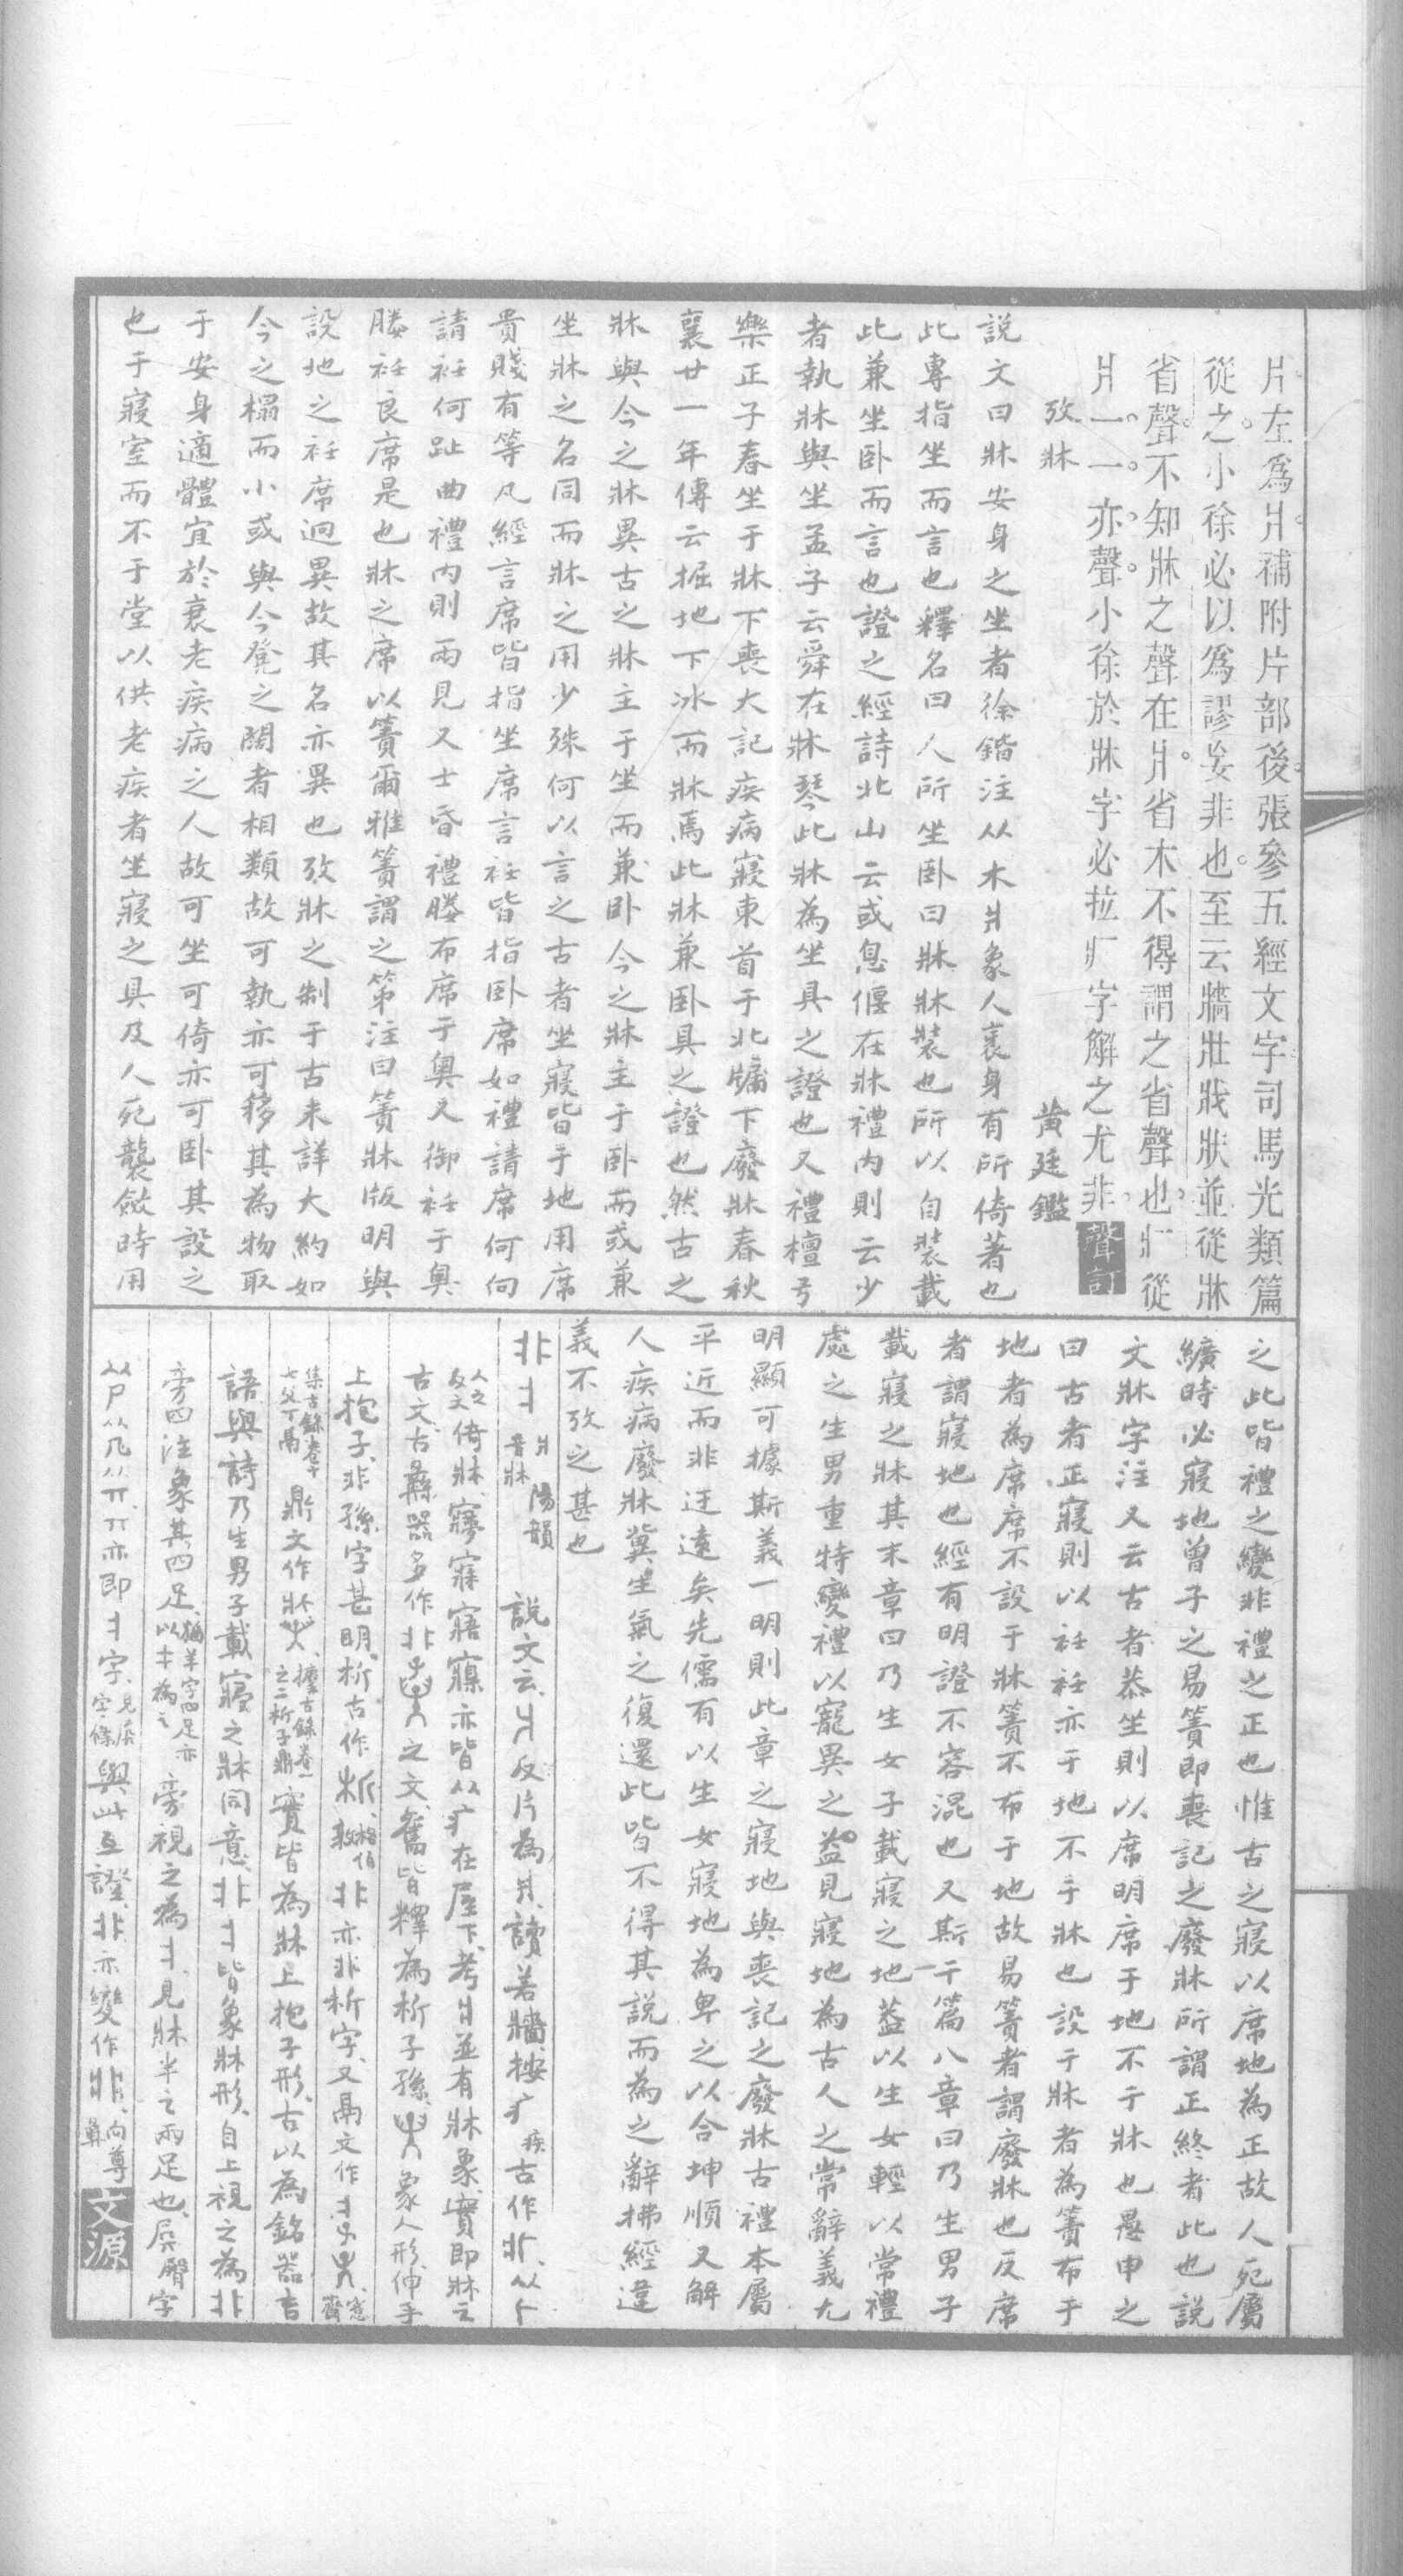 片左爲爿補附片部後張參五經文字司馬光類篇
從之小徐必以爲謬妄非也至云牆壯戕狀並從牀
省聲不知牀之聲在爿省木不得謂之省聲也疒從
爿一一亦聲小徐於牀字必拉疒字解之尤非聲訂
攷牀 黃廷鑑
說文曰牀安身之坐者徐鍇注从木爿象人裏身有所倚著也
此專指坐而言也釋名曰人所坐卧曰牀牀裝也所以自裝載
此兼坐卧而言也證之經詩北山云或息偃在牀禮內則云少
者執牀與坐孟子云舜在牀琴此牀為坐具之證也又禮檀弓
樂正子春坐于牀下喪大記疾病寢東首于北牖下廢牀春秋
襄廿一年傳云掘地下冰而牀焉此牀兼卧具之證也然古之
牀與今之牀異古之牀主于坐而兼卧今之牀主于卧而或兼
坐牀之名同而牀之用少殊何以言之古者坐寢皆于地用席
貴賤有等凡經言席皆指坐席言衽皆指卧席如禮請席何向
請衽何趾曲禮內則兩見又士昏禮媵布席于奧又御衽于奧
媵衽良席是也牀之席以簀爾雅簀謂之笫注曰簀牀版明與
設地之衽席迥異故其名亦異也攷牀之制于古未詳大約如
今之榻而小或與今凳之闊者相類故可執亦可移其為物取
于安身適體宜於衰老疾病之人故可坐可倚亦可卧其設之
也于寢室而不于堂以供老疾者坐寢之具及人死襲斂時用
之此皆禮之變非禮之正也惟古之寢以席地為正故人死屬
纊時必寢地曾子之易簀即喪記之廢牀所謂正終者此也說
文牀字注又云古者恭坐則以席明席于地不于牀也愚申之
曰古者正寢則以衽衽亦于地不于牀也設于牀者為簀布于
地者為席席不設于牀簀不布于地故易簀者謂廢牀也反席
者謂寢地也經有明證不容混也又斯干篇八章曰乃生男子
載寢之牀其末章曰乃生女子載寢之地蓋以生女輕以常禮
處之生男重特變禮以寵異之益見寢地為古人之常辭義尤
明顯可據斯義一明則此章之寢地與喪記之廢牀古禮本屬
平近而非迂遠矣先儒有以生女寢地為卑之以合坤順又解
人疾病廢牀冀生氣之復還此皆不得其說而為之辭拂經違
義不攷之甚也
爿音牀 陽韻 說文云爿反片為爿讀若牆按疒疾古作
人之反文倚牀寢寐寤寱亦皆从疒在屋下考爿並有牀象實即牀之
古文古彝器多作 之文舊皆釋為析子孫 象人形伸手
上抱子非孫字甚明析古作析格伯敦 亦非析字又鬲文作
集古錄卷十七父丁鬲 鼎文作 攈古錄卷一之二析子鼎 實皆為牀上抱子形古以為銘器吉
語與詩乃生男子載寢之牀同意 皆象牀形自上視之為
旁四注象其四足猶羊字四足亦以 為之 旁視之為 見牀半之兩足也 字
亦即 字見 字條 與此互證 亦變作 向尊彝 文源